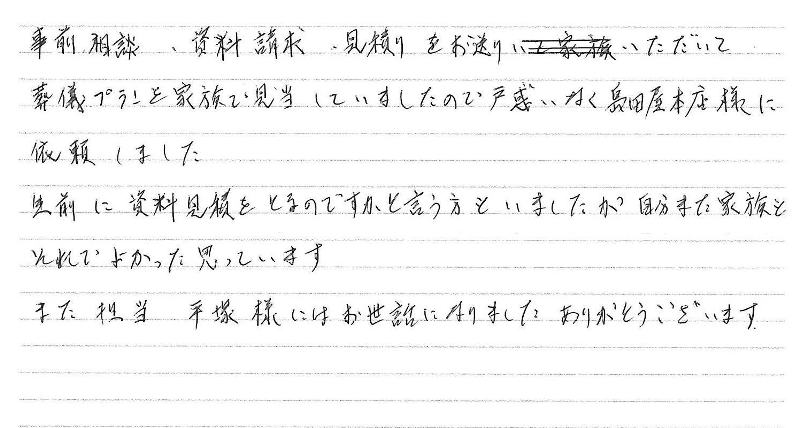 事前相談、資料請求、見積りをお送りいただいて
葬儀プランを家族で見当していましたので戸惑いなく島田屋本店様に
依頼しました
生前に資料見積をとるのですかと言う方もいましたが自分また家族も
それでよかった思っています
また担当 平塚様にはお世話になりました ありがとうございます